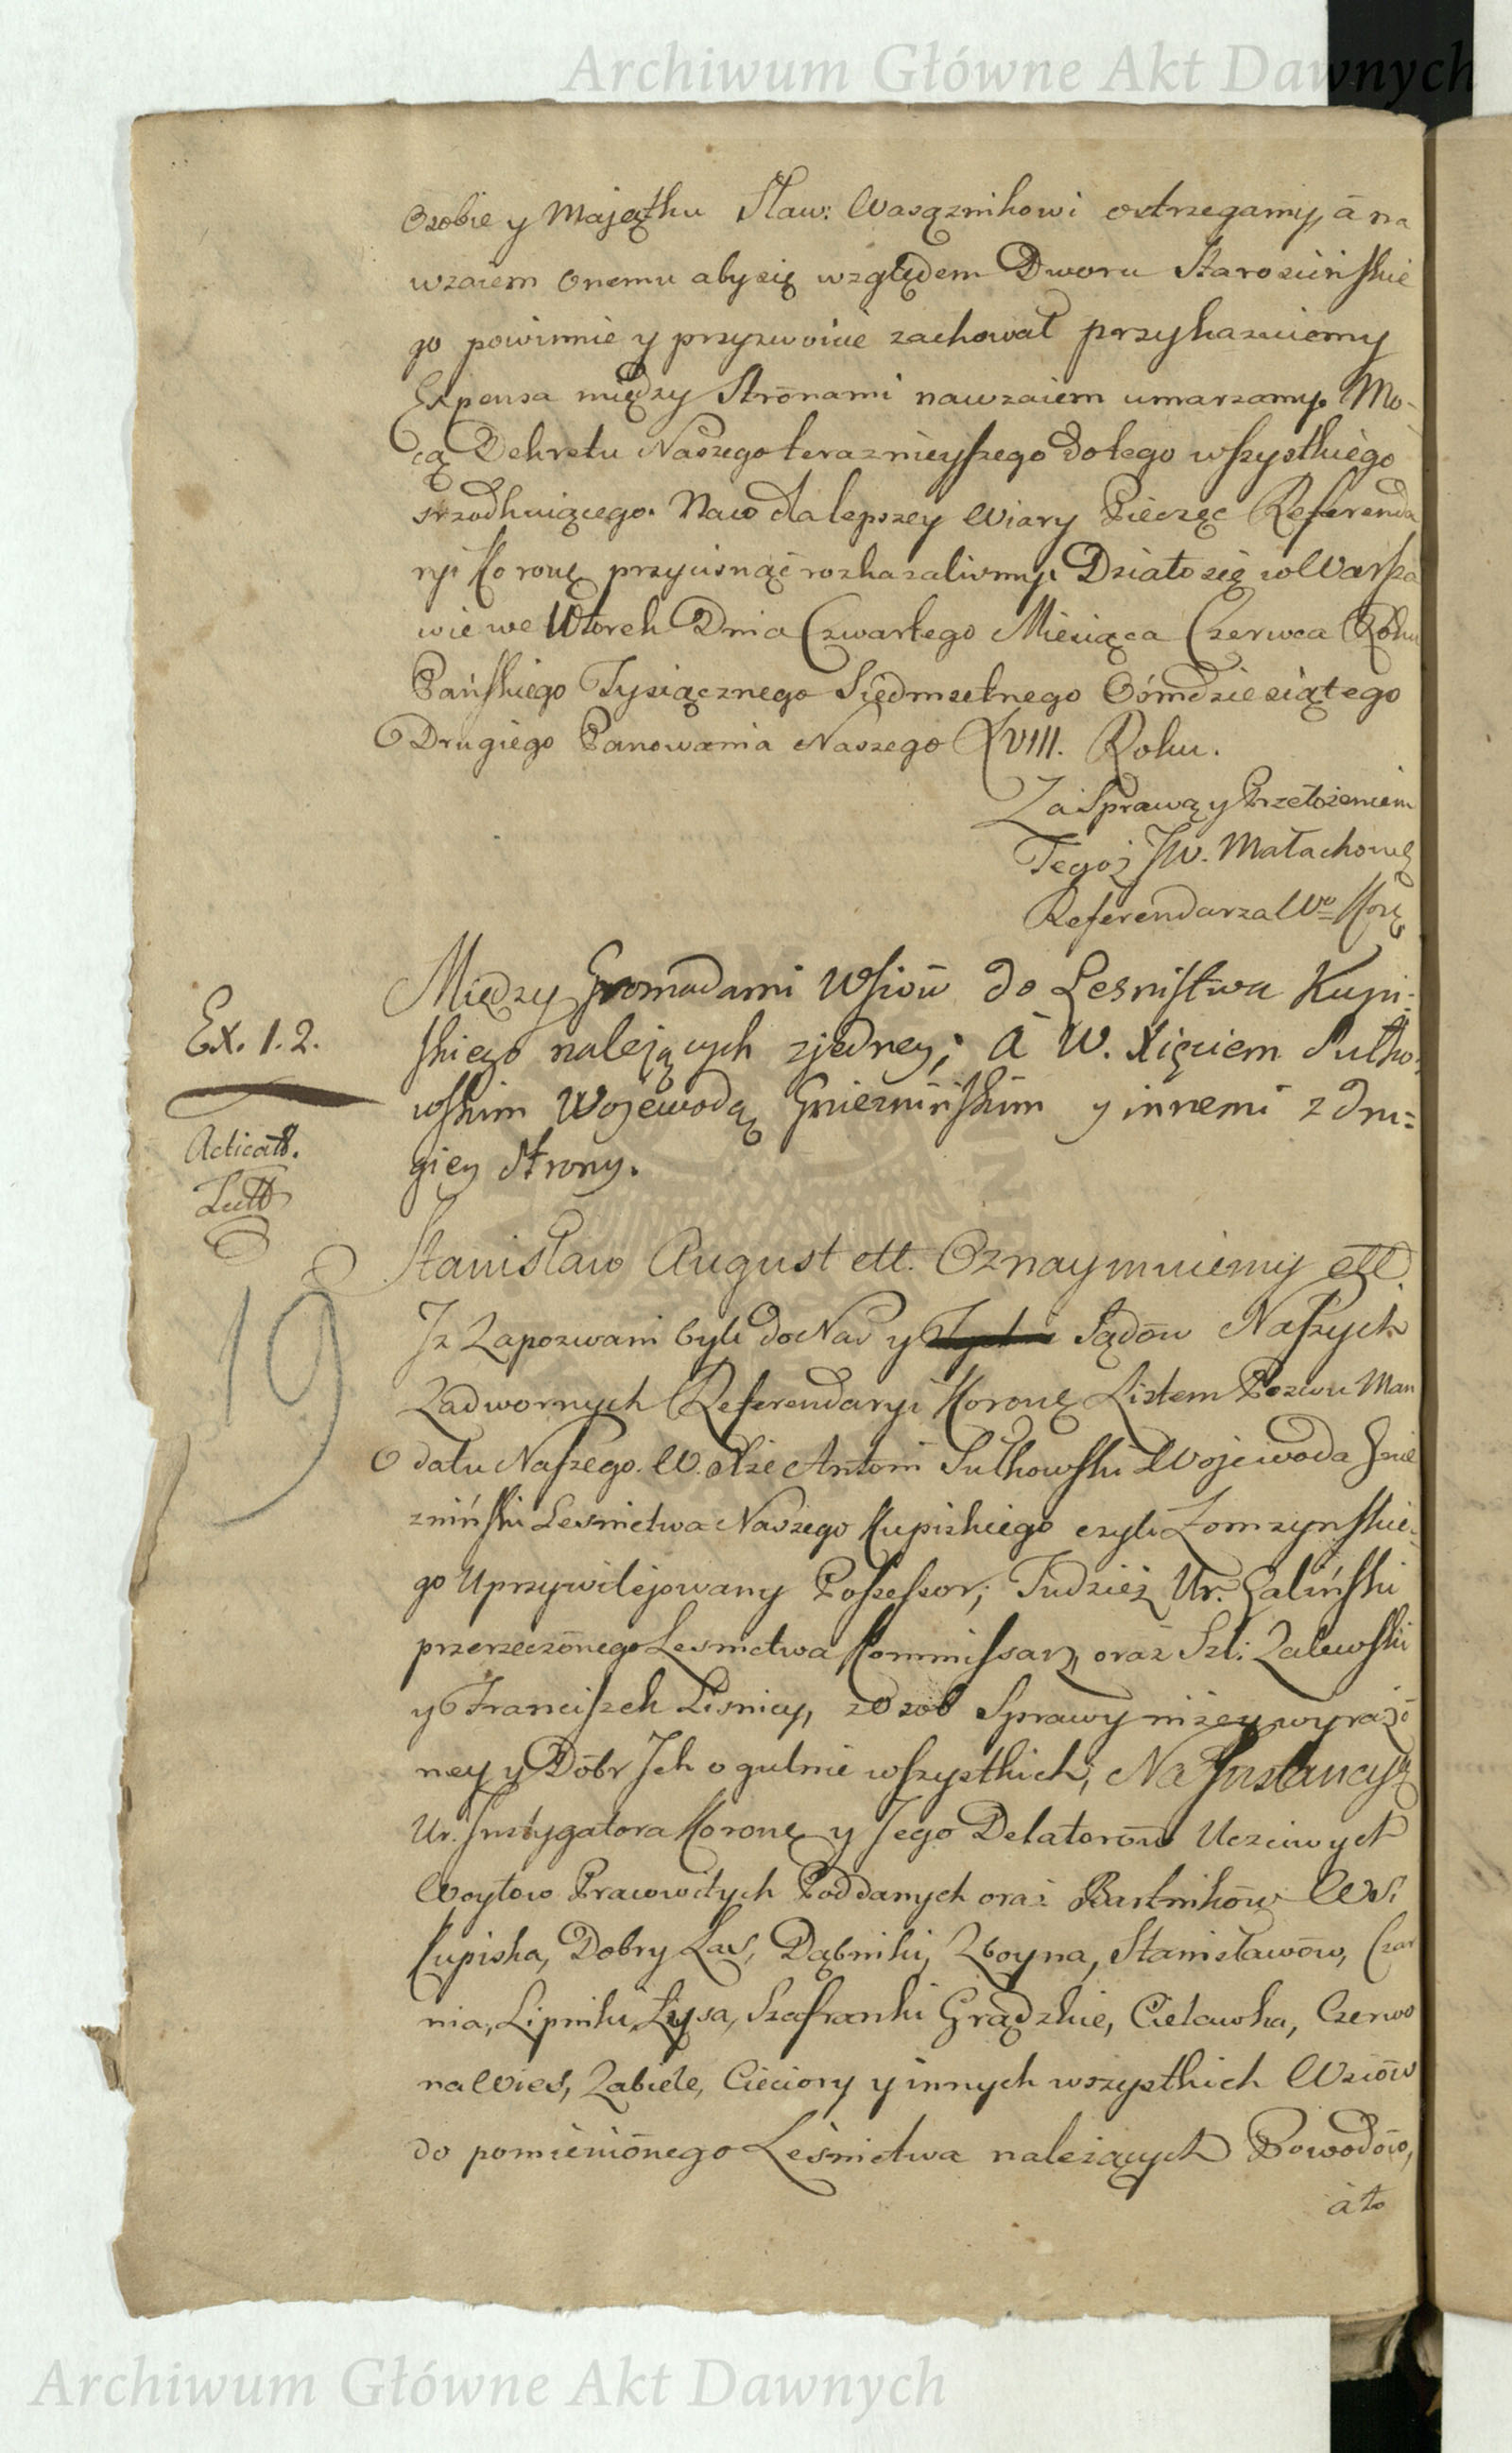 Archiwum Główne Akt Dawnych
Osobie y Majątku Sław: Wasążnikowi ostrzegamy, á na
wzaiem onemu aby się względem Dworu Staroscińskie
go powinnie y przyzwoicie zachował przykazuiemy
Expensa między Stronami nawzaiem umarzamy. Mo-
cą Dekretu Naszego teraznieyszego do tego wszystkiego
srzodkuiącego. Na co dla lepszey Wiary Pieczęć Referenda
ryi Koronę przycisnąć rozkazalismy. Działo się w Warsza
wie we Wtorek Dnia Czwartego Miesiąca Czerwca Roku
Pańskiego Tysiącznego Siedmsetnego Ośmdziesiątego
Drugiego Panowania Naszego XVIII. Roku.
Za Sprawą y Przełożeniem
Tegoż JW. Małachowę
Referendarza Wo Korę
Między Gromadami Wsiów do Lesnistwa Kupi-
skiego nalejących zjedney; á W. Xięciem Sułko-
wskim Wojewodą Gnieznińskim y innemi z dru=
giey Strony.
Ex. 1. 2.
Acticatt.
19
Stanisław August ett. Oznaymuiemy ett.
Iz Zapozwani byli do Nas y Sądów Naszych
Zadwornych Referendaryi Koronę Listem Pozwu Man
datu Naszego. W. Xże Antoni Sułkowski Wojewoda Gnie
zniński Lesnictwa Naszego Kupiskiego czyli Łomzynskie-
go Uprzywilejowany Possessor; Tudzież Ur. Zaliński
przerzeczónego Lesnictwa Kommissarz, oraz Szl: Zalewski
y Franciszek Lisnicy, z Osob Sprawy niżey wyrażo
ney y Dóbr Ich ogulnie wszystkich; Na Instancyą
Ur. Instygatora Koronę y Jego Delatorów Uczciwych
Woytow Pracowitych Poddanych oraz Bartników Wsi
Kupiska, Dobry Las, Dąbniki, Zboyna, Stanisławów, Czar
nia, Lipniki, Łysa, Szafranki Grądzkie, Cietawka, Czerwo
na Wies, Zabiele, Cieciory y innych wszystkich Wsiów
do pomieniónego Leśnictwa należących Powodów,
á to
Archiwum Główne Akt Dawnych